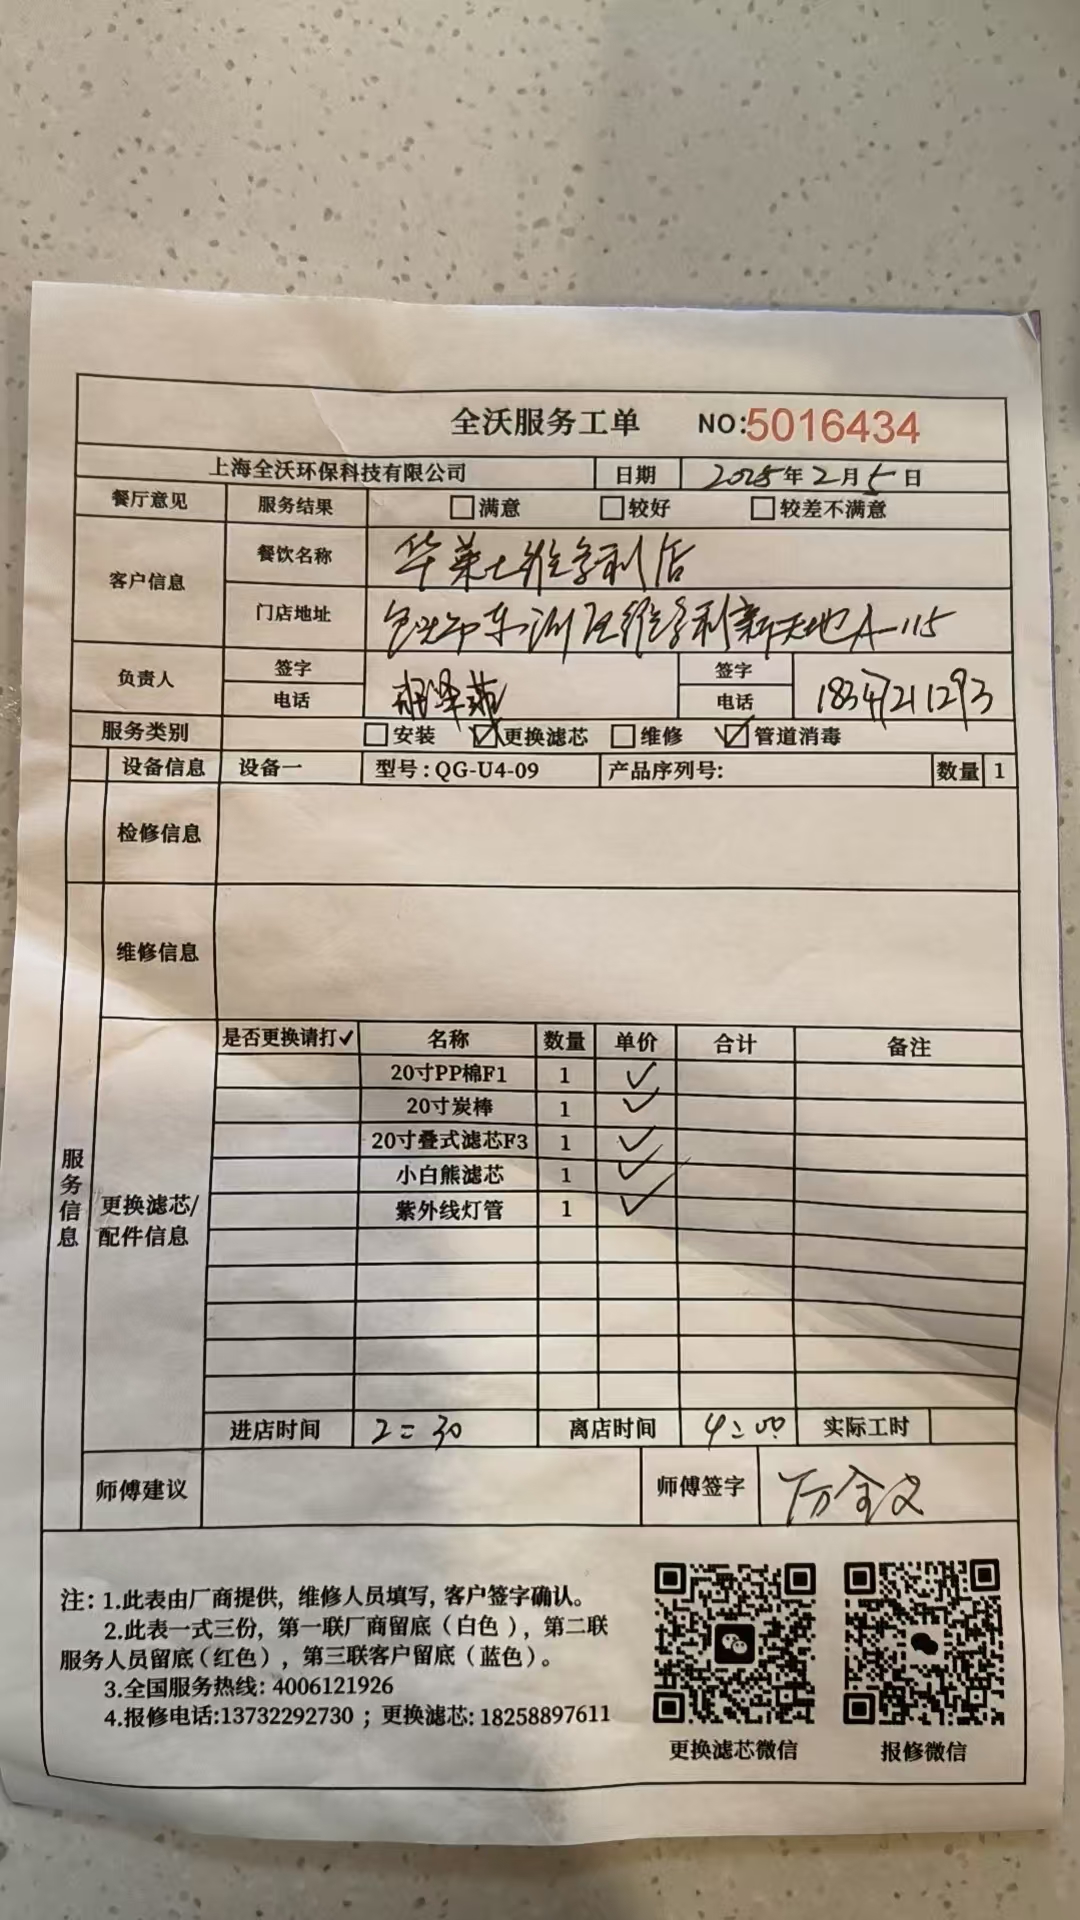 全沃服务工单 NO:5016434
上海全沃环保科技有限公司 日期 2025年2月5日
餐厅意见 服务结果 满意 较好 较差不满意
客户信息 餐饮名称 华莱士维多利店
门店地址 包头市东河区维多利新天地A-115
负责人 签字 电话 签字 电话 18347211293
服务类别 安装 更换滤芯 维修 管道消毒
设备信息 设备一 型号:QG-U4-09 产品序列号: 数量 1
检修信息
维修信息
服务信息
更换滤芯/配件信息
是否更换请打✓ 名称 数量 单价 合计 备注
20寸PP棉F1 1 ✓
20寸炭棒 1 ✓
20寸叠式滤芯F3 1 ✓
小白熊滤芯 1 ✓
紫外线灯管 1 ✓
进店时间 2:30 离店时间 4:00 实际工时
师傅建议 师傅签字 万全文
注: 1.此表由厂商提供, 维修人员填写, 客户签字确认。
2.此表一式三份, 第一联厂商留底(白色), 第二联
服务人员留底(红色), 第三联客户留底(蓝色)。
3.全国服务热线: 4006121926
4.报修电话:13732292730 ; 更换滤芯: 18258897611
更换滤芯微信 报修微信